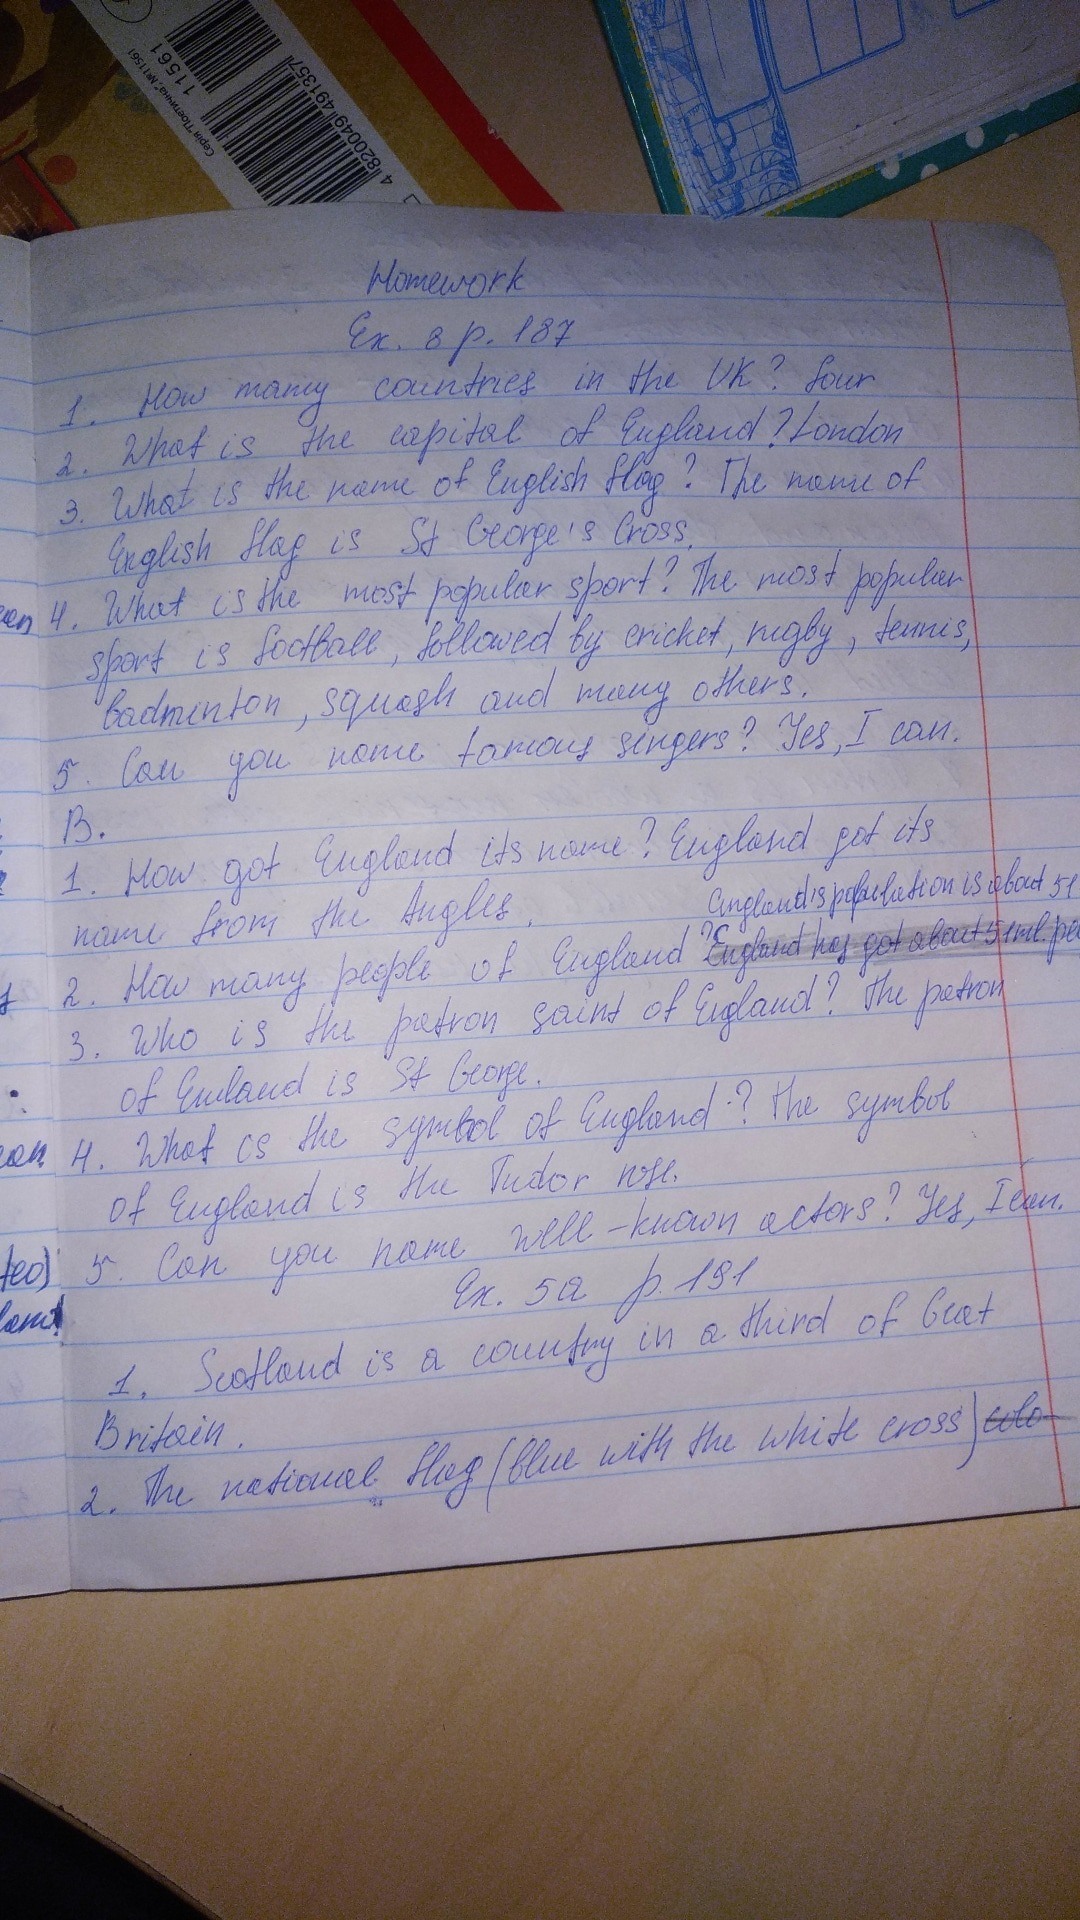 Серія "Поетична", №11561
11561
4 820049 491357
Homework
Ex. 8 p. 187
1. How many countries in the UK? four
2. What is the capital of England? London
3. What is the name of English flag? The name of
English flag is St George's Cross.
4. What is the most popular sport? The most popular
sport is football, followed by cricket, rugby, tennis,
badminton, squash and many others.
5. Can you name famous singers? Yes, I can.
B.
1. How got England its name? England got its
name from the Angles.
England's population is about 51
2. How many people of England? England has got about 51 ml. peo
3. Who is the patron saint of England? The patron
of England is St George.
4. What is the symbol of England? The symbol
of England is the Tudor rose.
5. Can you name well-known actors? Yes, I can.
Ex. 5a p. 191
1. Scotland is a country in a third of Great
Britain.
2. The national flag (blue with the white cross) colo-